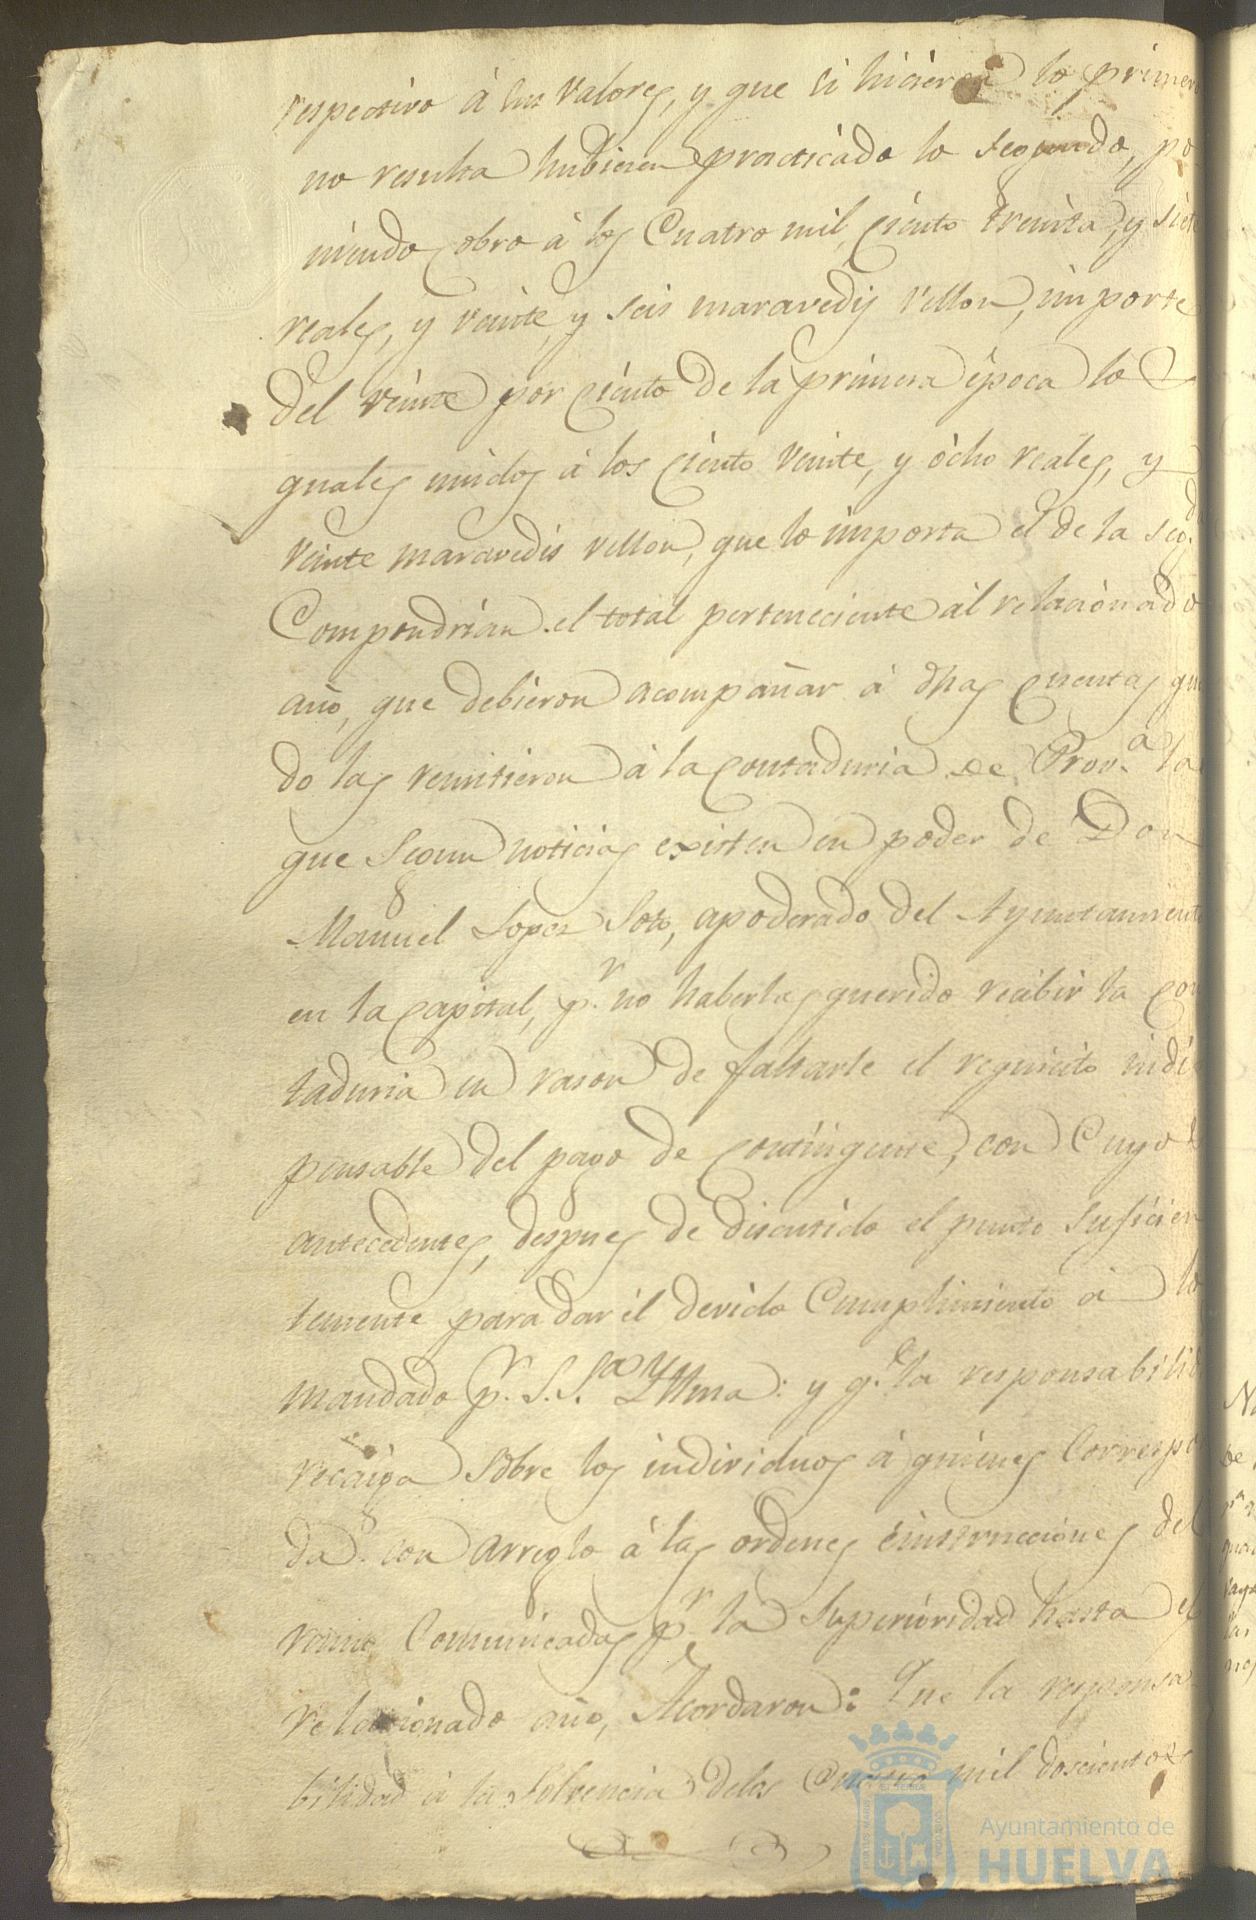 respectivo á sus valores, y que si hicieron lo primero
no resulta hubiesen practicado lo segundo, po
niendo cobro á los Cuatro mil, ciento treinta, y siete
reales, y veinte, y seis maravedis vellon, importe
del veinte por ciento de la primera época lo
quales unidos á los ciento veinte, y ócho reales, y
veinte maravedis vellon, que lo importa el de la seg.da
Compondrian el total perteneciente ál relacionado
año, que debieron acompañar á dhas cuentas qn
do las remitieron á la contaduria de Prov.a la
que segun noticias existen en poder de Don
Manuel Lopez Soto, apoderado del Ayuntamiento
en la capital, p.r no haberlas querido recibir la con
taduria en rason de faltarle el requisito indis
pensable del pago de contingente, con Cuyo
antecedentes, despues de discutido el punto suficien
temente para dar él devido Cumplimiento á lo
mandado p.r S. S.a Yllma: y q.e la responsabilid
recaiga sobre los individuos á quienes Correspon
da con arreglo á las ordenes é instrucciones del
ramo Comunicadas p.r la Superioridad hasta el
relacionado año, Acordaron: Que la responsa
bilidad á la Solvencia delos Cuatro mil doscientos
Ayuntamiento de
HUELVA